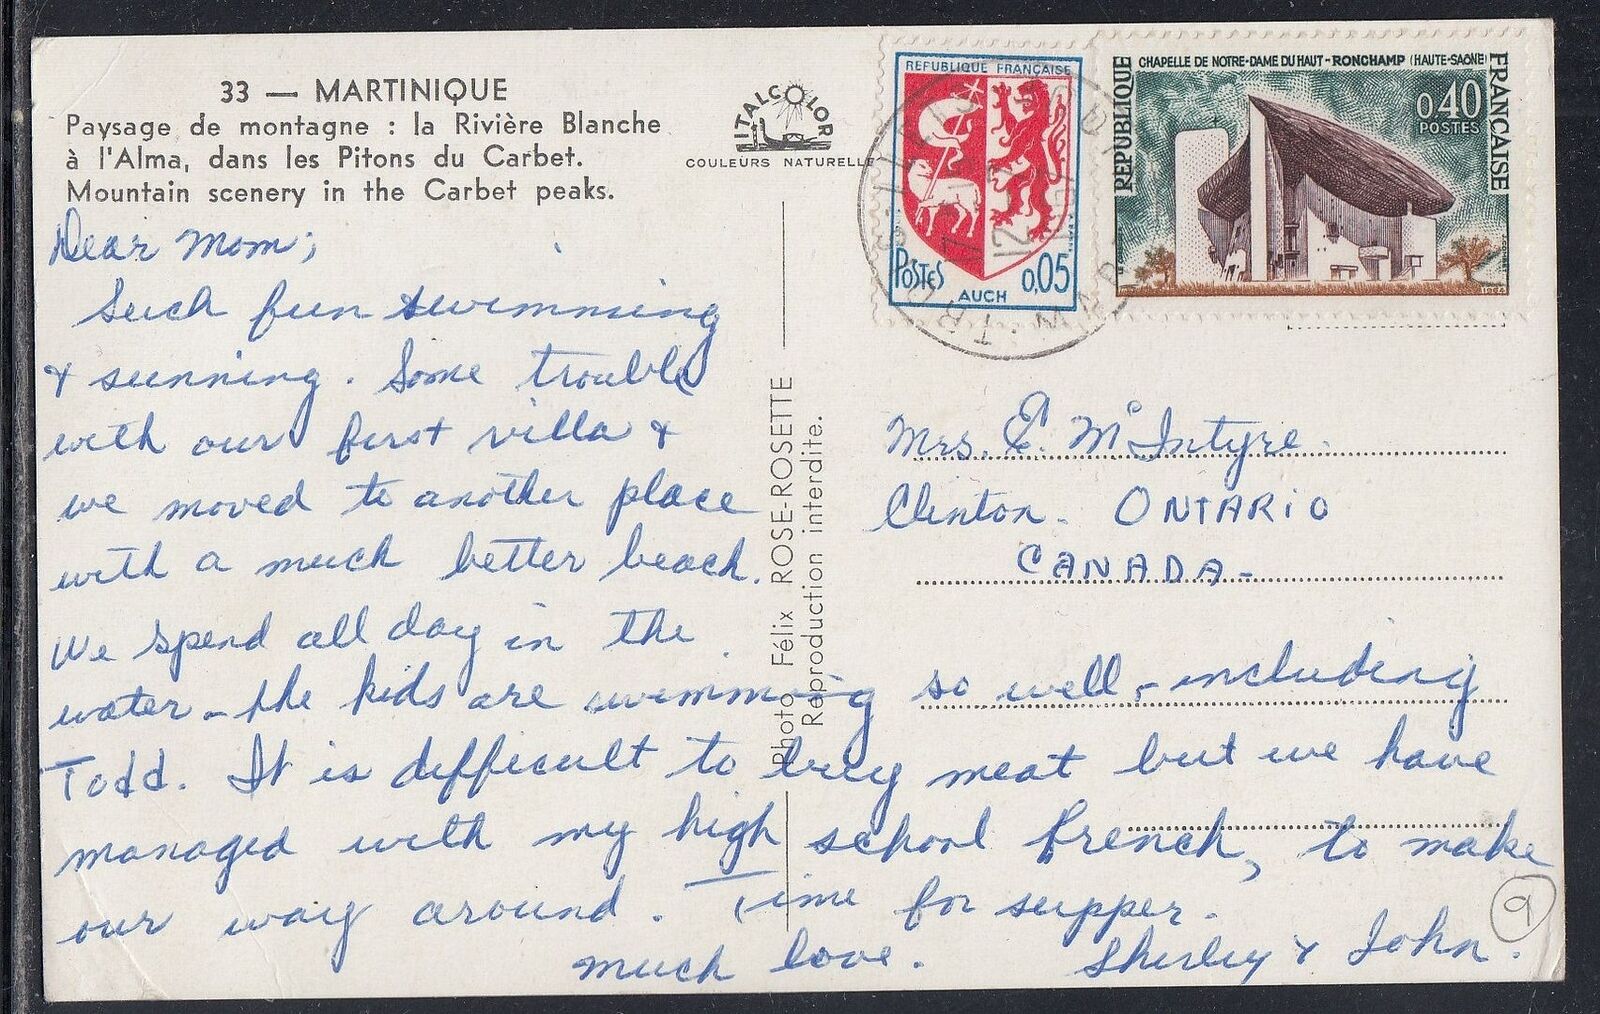 33 — MARTINIQUE
Paysage de montagne : la Rivière Blanche
à l'Alma, dans les Pitons du Carbet.
Mountain scenery in the Carbet peaks.
ITALCOLOR
COULEURS NATURELLES
REPUBLIQUE FRANÇAISE
POSTES 0,05
AUCH
CHAPELLE DE NOTRE-DAME DU HAUT - RONCHAMP (HAUTE-SAÔNE)
REPUBLIQUE
FRANÇAISE
0,40
POSTES
1964
Dear Mom;
Such fun swimming
& sunning. Some trouble
with our first villa &
we moved to another place
with a much better beach.
We spend all day in the
water - the kids are swimming so well, - including
Todd. It is difficult to buy meat but we have
managed with my high school French, to make
our way around. Time for supper.
much love. Shirley & John.
Photo Félix ROSE-ROSETTE
Reproduction interdite.
Mrs. E. McIntyre.
Clinton. ONTARIO
CANADA-
9